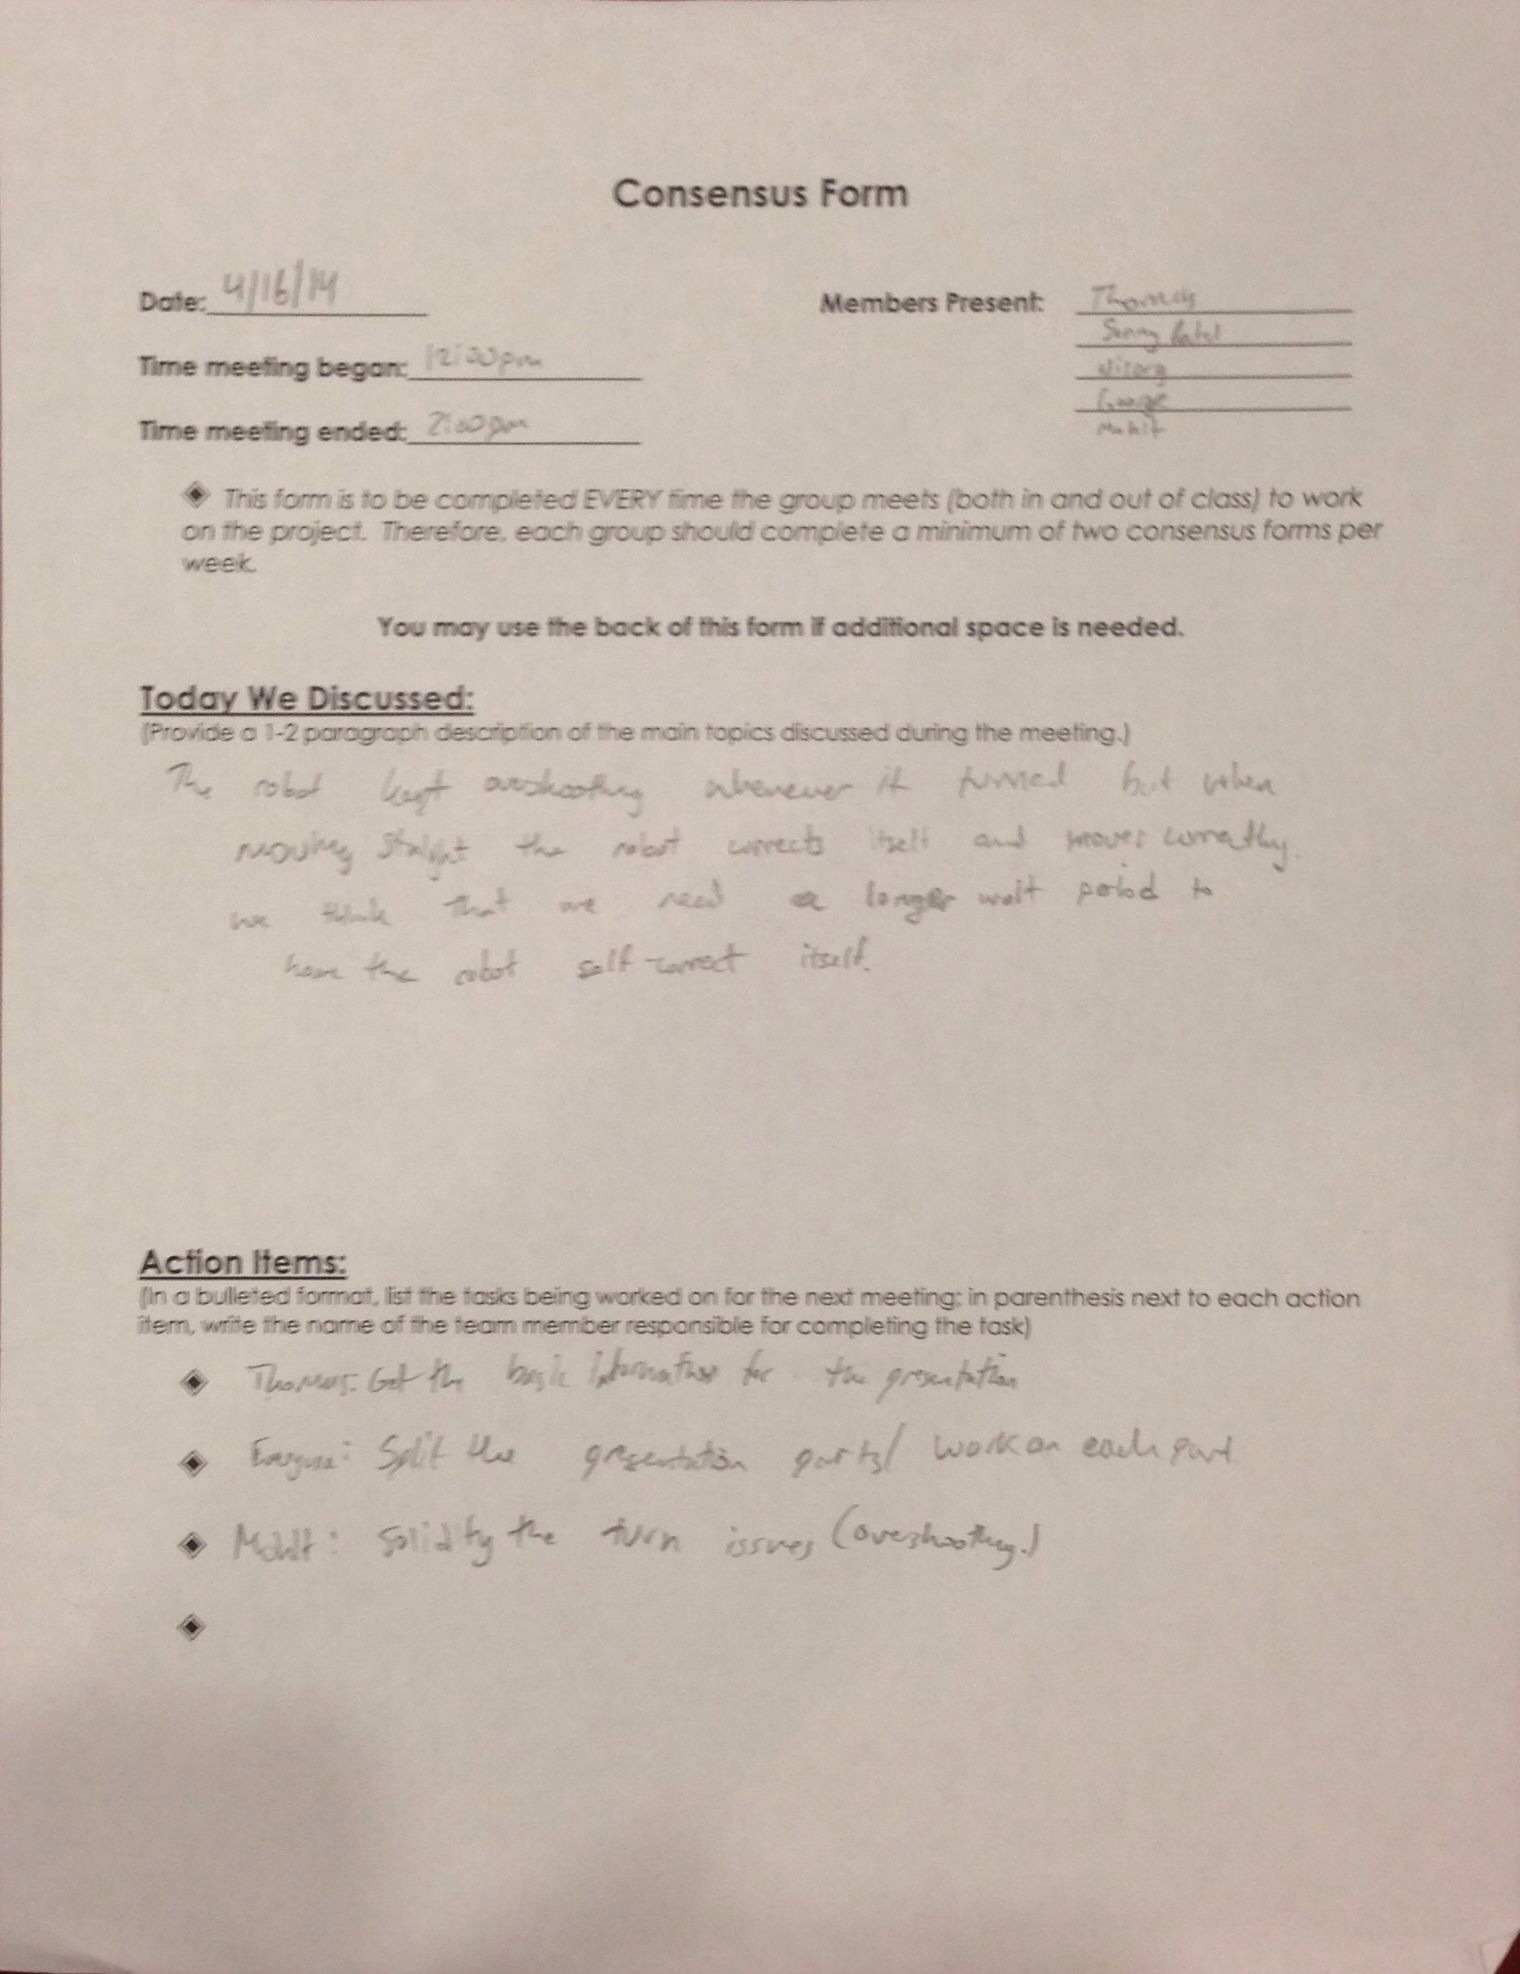 Consensus Form
Date: 4/16/14
Members Present: Thomas
Sunny Patel
Nisarg
George
Mohit
Time meeting began: 12:00pm
Time meeting ended: 2:00pm
This form is to be completed EVERY time the group meets (both in and out of class) to work
on the project. Therefore, each group should complete a minimum of two consensus forms per
week.
You may use the back of this form if additional space is needed.
Today We Discussed:
(Provide a 1-2 paragraph description of the main topics discussed during the meeting.)
The robot kept overshooting whenever it turned but when
moving straight the robot corrects itself and moves correctly.
we think that we need a longer wait period to
have the robot self-correct itself.
Action Items:
(In a bulleted format, list the tasks being worked on for the next meeting; in parenthesis next to each action
item, write the name of the team member responsible for completing the task)
Thomas: Get the basic information for the presentation
Everyone: Split the presentation parts/ work on each part
Mohit: Solidify the turn issues (overshooting.)